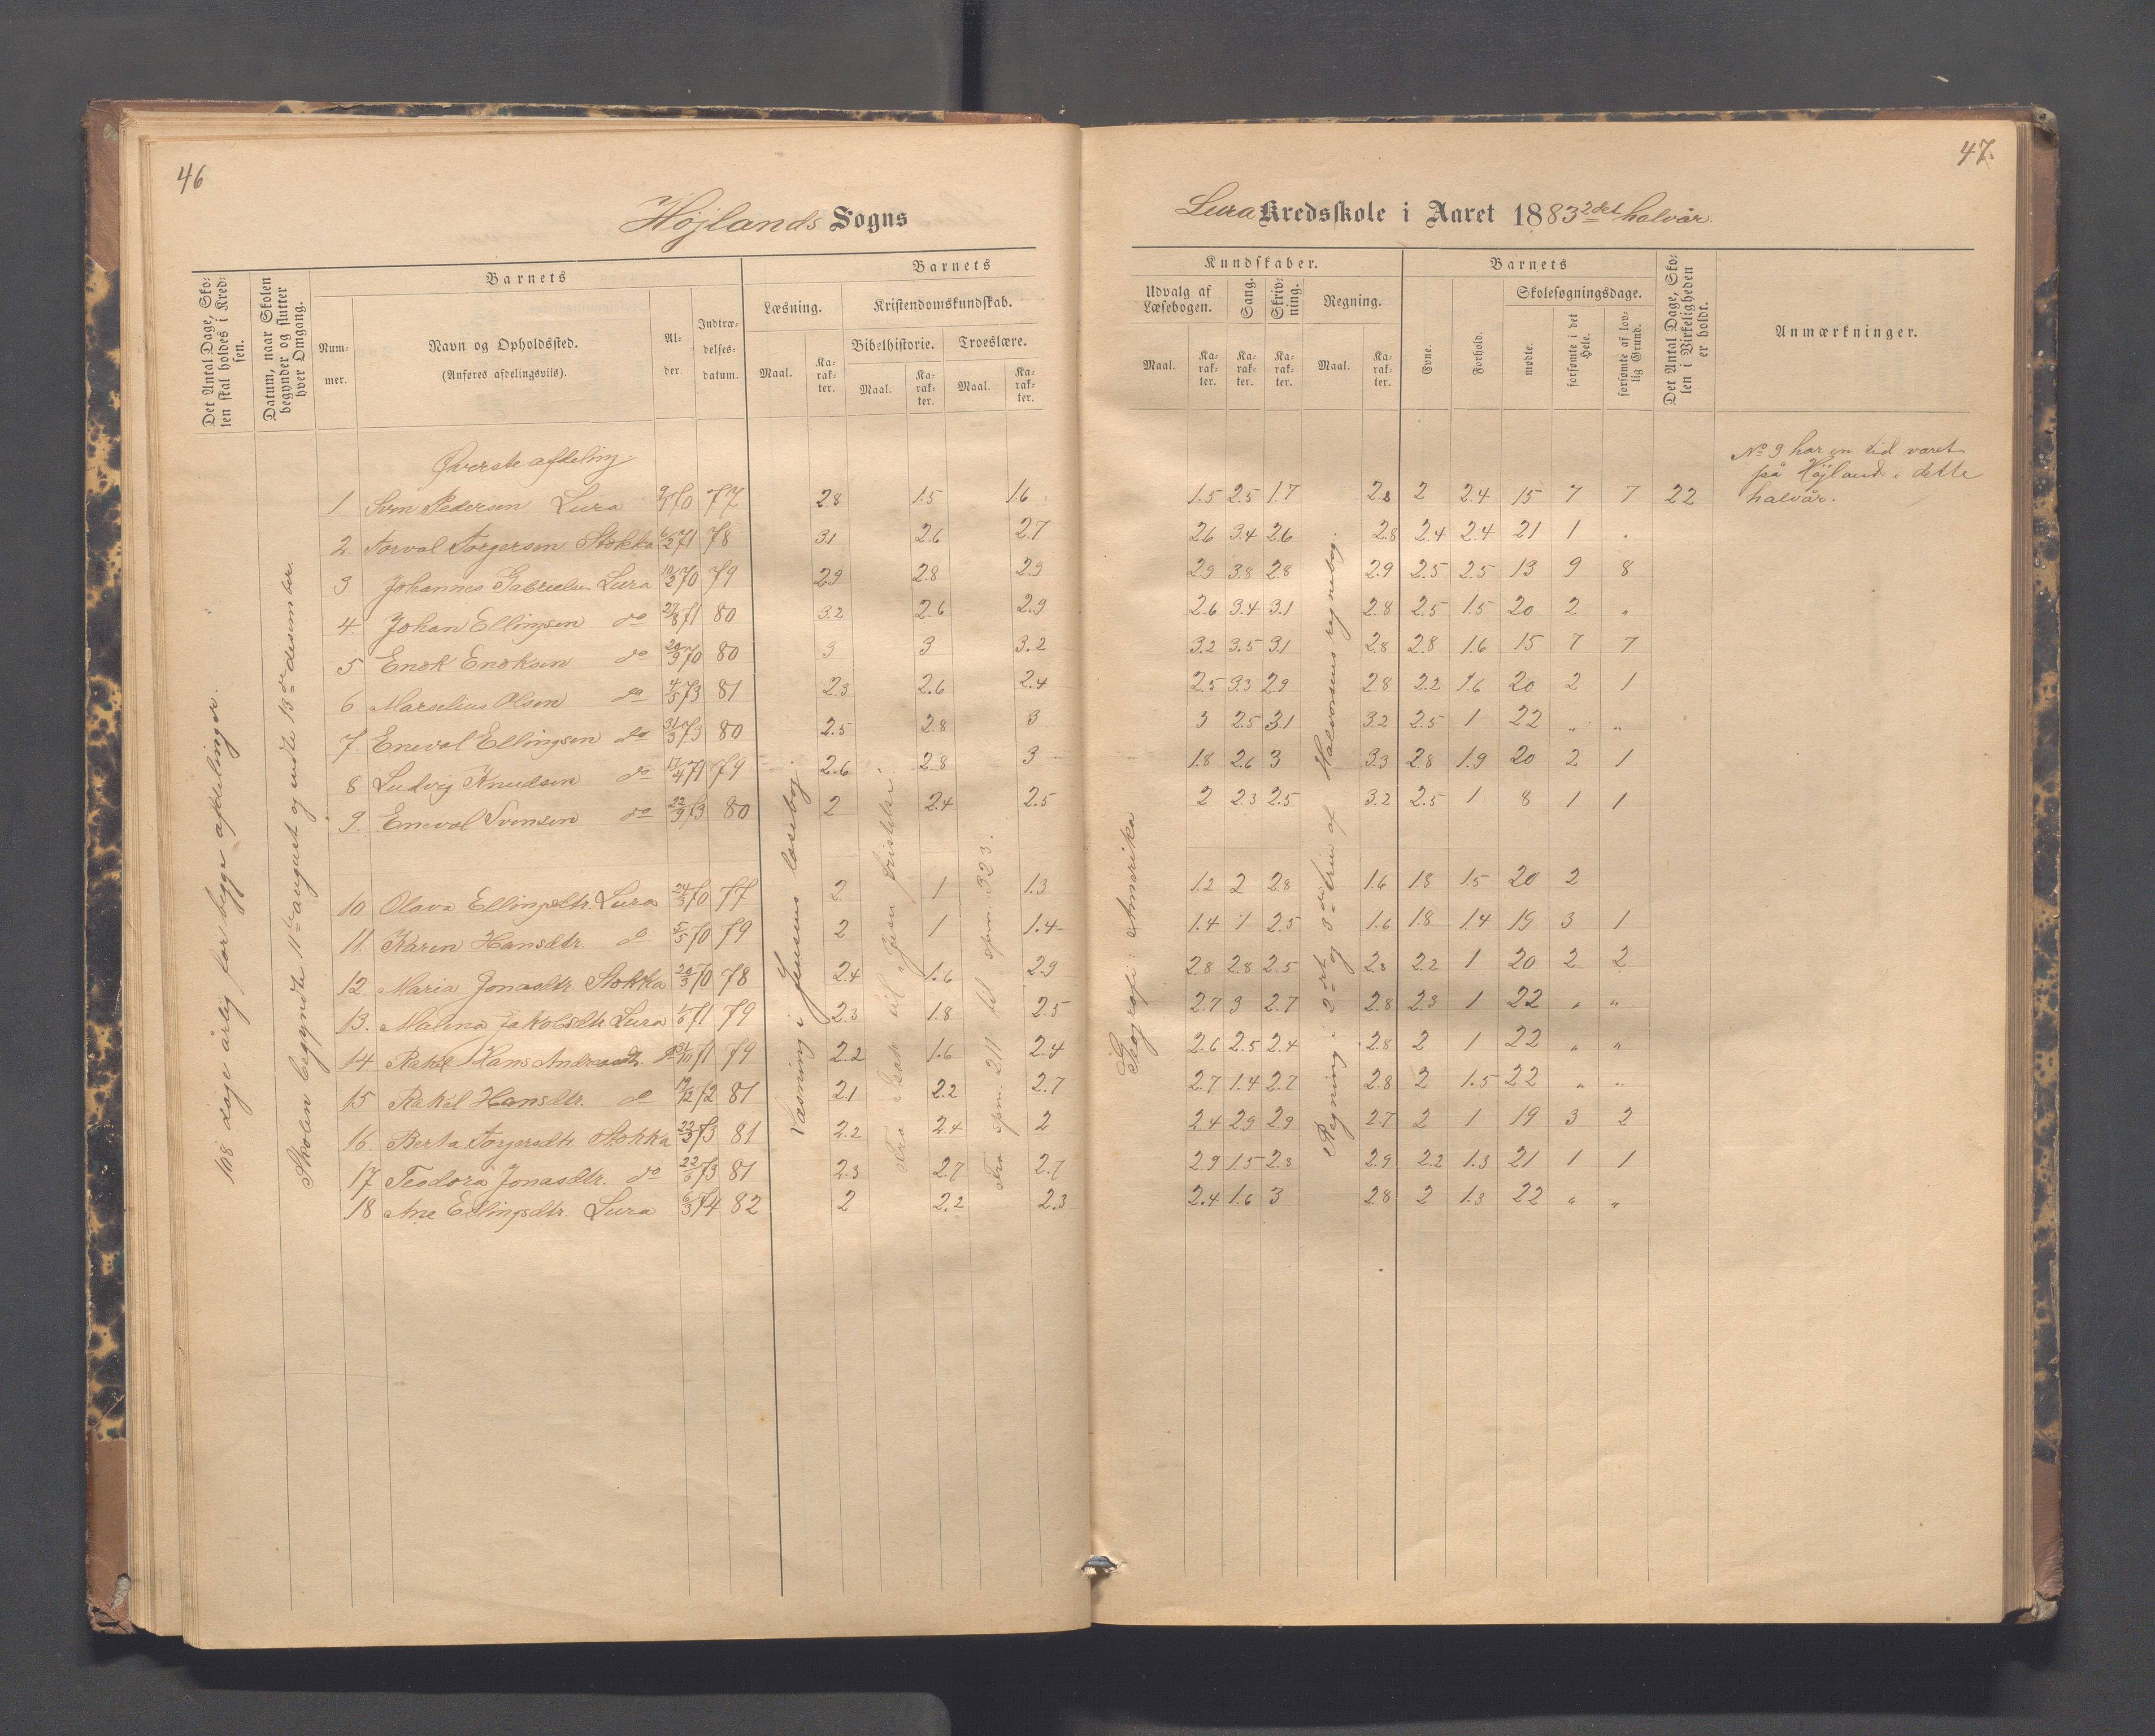 46
Højlands Sogns
Det Antal Dage, Skolen skal holdes i Kredsen.
Datum, naar Skolen begynder og slutter hver Omgang.
Barnets
Nummer.
Navn og Opholdssted.
(Anføres afdelingsviis).
Alder.
Indtrædelsesdatum.
Barnets
Læsning.
Kristendomskundskab.
Bibelhistorie. Troeslære.
Maal. Karakter. Maal. Karakter. Maal. Karakter.
108 dage årlig for begge afdelinger.
Skolen begyndte 11te august og endte 13de desember.
Læsning i Jensens læsebog.
Fra Isak til
Fra spm. 211 til spm. 323.
Øverste afdeling.
1 Sven Pedersen Lura 70 77 2.8 1.5 1.6
2 Torval Torgersen Stokka 6/2 71 78 3.1 2.6 2.7
3 Johannes Gabrielsen Lura 10/2 70 79 2.9 2.8 2.9
4. Johan Ellingsen do 27/8 71 80 3.2 2.6 2.9
5 Enok Enoksen do 20/9 70 80 3 3 3.2
6 Marselius Olsen do 4/5 73 81 2.3 2.6 2.4
7. Eneval Ellingsen do 31/3 73 80 2.5 2.8 3
8 Ludvig Knudsen do 17/4 71 79 2.6 2.8 3
9. Eneval Svensen do 22/9 73 80 2 2.4 2.5
10 Olava Ellingsdtr. Lura 24/3 70 77 2 1 1.3
11. Karen Hansdtr. do 5/5 70 79 2 1 1.4
12. Maria Jonasdtr. Stokka 20/3 70 78 2.4 1.6 2.9
13. Malena Jakobsdtr Lura 71 79 2.3 1.8 2.5
14 Rakel Hans Andreasdt. do 31/10 71 79 2.2 1.6 2.4
15 Rakel Hansdtr. do 19/12 72 81 2.1 2.2 2.7
16. Berta Torgersdtr Stokka 22/3 73 81 2.2 2.4 2
17 Teodora Jonasdtr. do 73 81 2.3 2.7 2.7
18 Ane Ellingsdtr. Lura 6/3 74 82 2 2.2 2.3
47.
Lura Kredsskole i Aaret 1883 2det halvår.
Kundskaber.
Udvalg af Læsebogen. Sang. Skrivning. Regning.
Maal. Karakter. Karakter. Karakter. Maal. Karakter.
Barnets
Evne. Forhold.
Skolesøgningsdage.
mødte. forsømte i det Hele. forsømte af lovlig Grund.
Det Antal Dage, Skolen i Virkeligheden er holdt.
Anmærkninger.
Geografi: Amerika
Regning i 2det og 3de trin af Halvorsens regnebog.
No 9 har en tid været
på Højland i dette
halvår.
1.5 2.5 1.7 2.8 2 2.4 15 7 7 22
2.6 3.4 2.6 2.8 2.4 2.4 21 1 "
2.9 3.8 2.8 2.9 2.5 2.5 13 9 8
2.6 3.4 3.1 2.8 2.5 1.5 20 2 "
3.2 3.5 3.1 2.8 2.8 1.6 15 7 7
2.5 3.3 2.9 2.8 2.2 1.6 20 2 1
3 2.5 3.1 3.2 2.5 1 22 " "
1.8 2.6 3 3.3 2.8 1.9 20 2 1
2 2.3 2.5 3.2 2.5 1 8 1 1
1.2 2 2.8 1.6 1.8 1.5 20 2
1.4 1 2.5 1.6 1.8 1.4 19 3 1
2.8 2.8 2.5 2.8 2.2 1 20 2 2
2.7 3 2.7 2.8 2.3 1 22 " "
2.6 2.5 2.4 2.8 2 1 22 " "
2.7 1.4 2.7 2.8 2 1.5 22 " "
2.4 2.9 2.9 2.7 2 1 19 3 2
2.9 1.5 2.8 2.9 2.2 1.3 21 1 1
2.4 1.6 3 2.8 2 1.3 22 " "